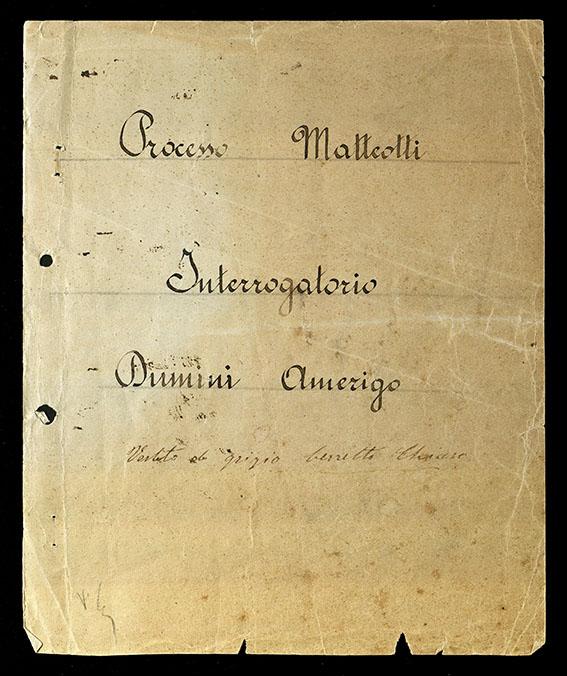 Processo Matteotti
Interrogatorio
Dumini Amerigo
Vestito di grigio berretto chiaro